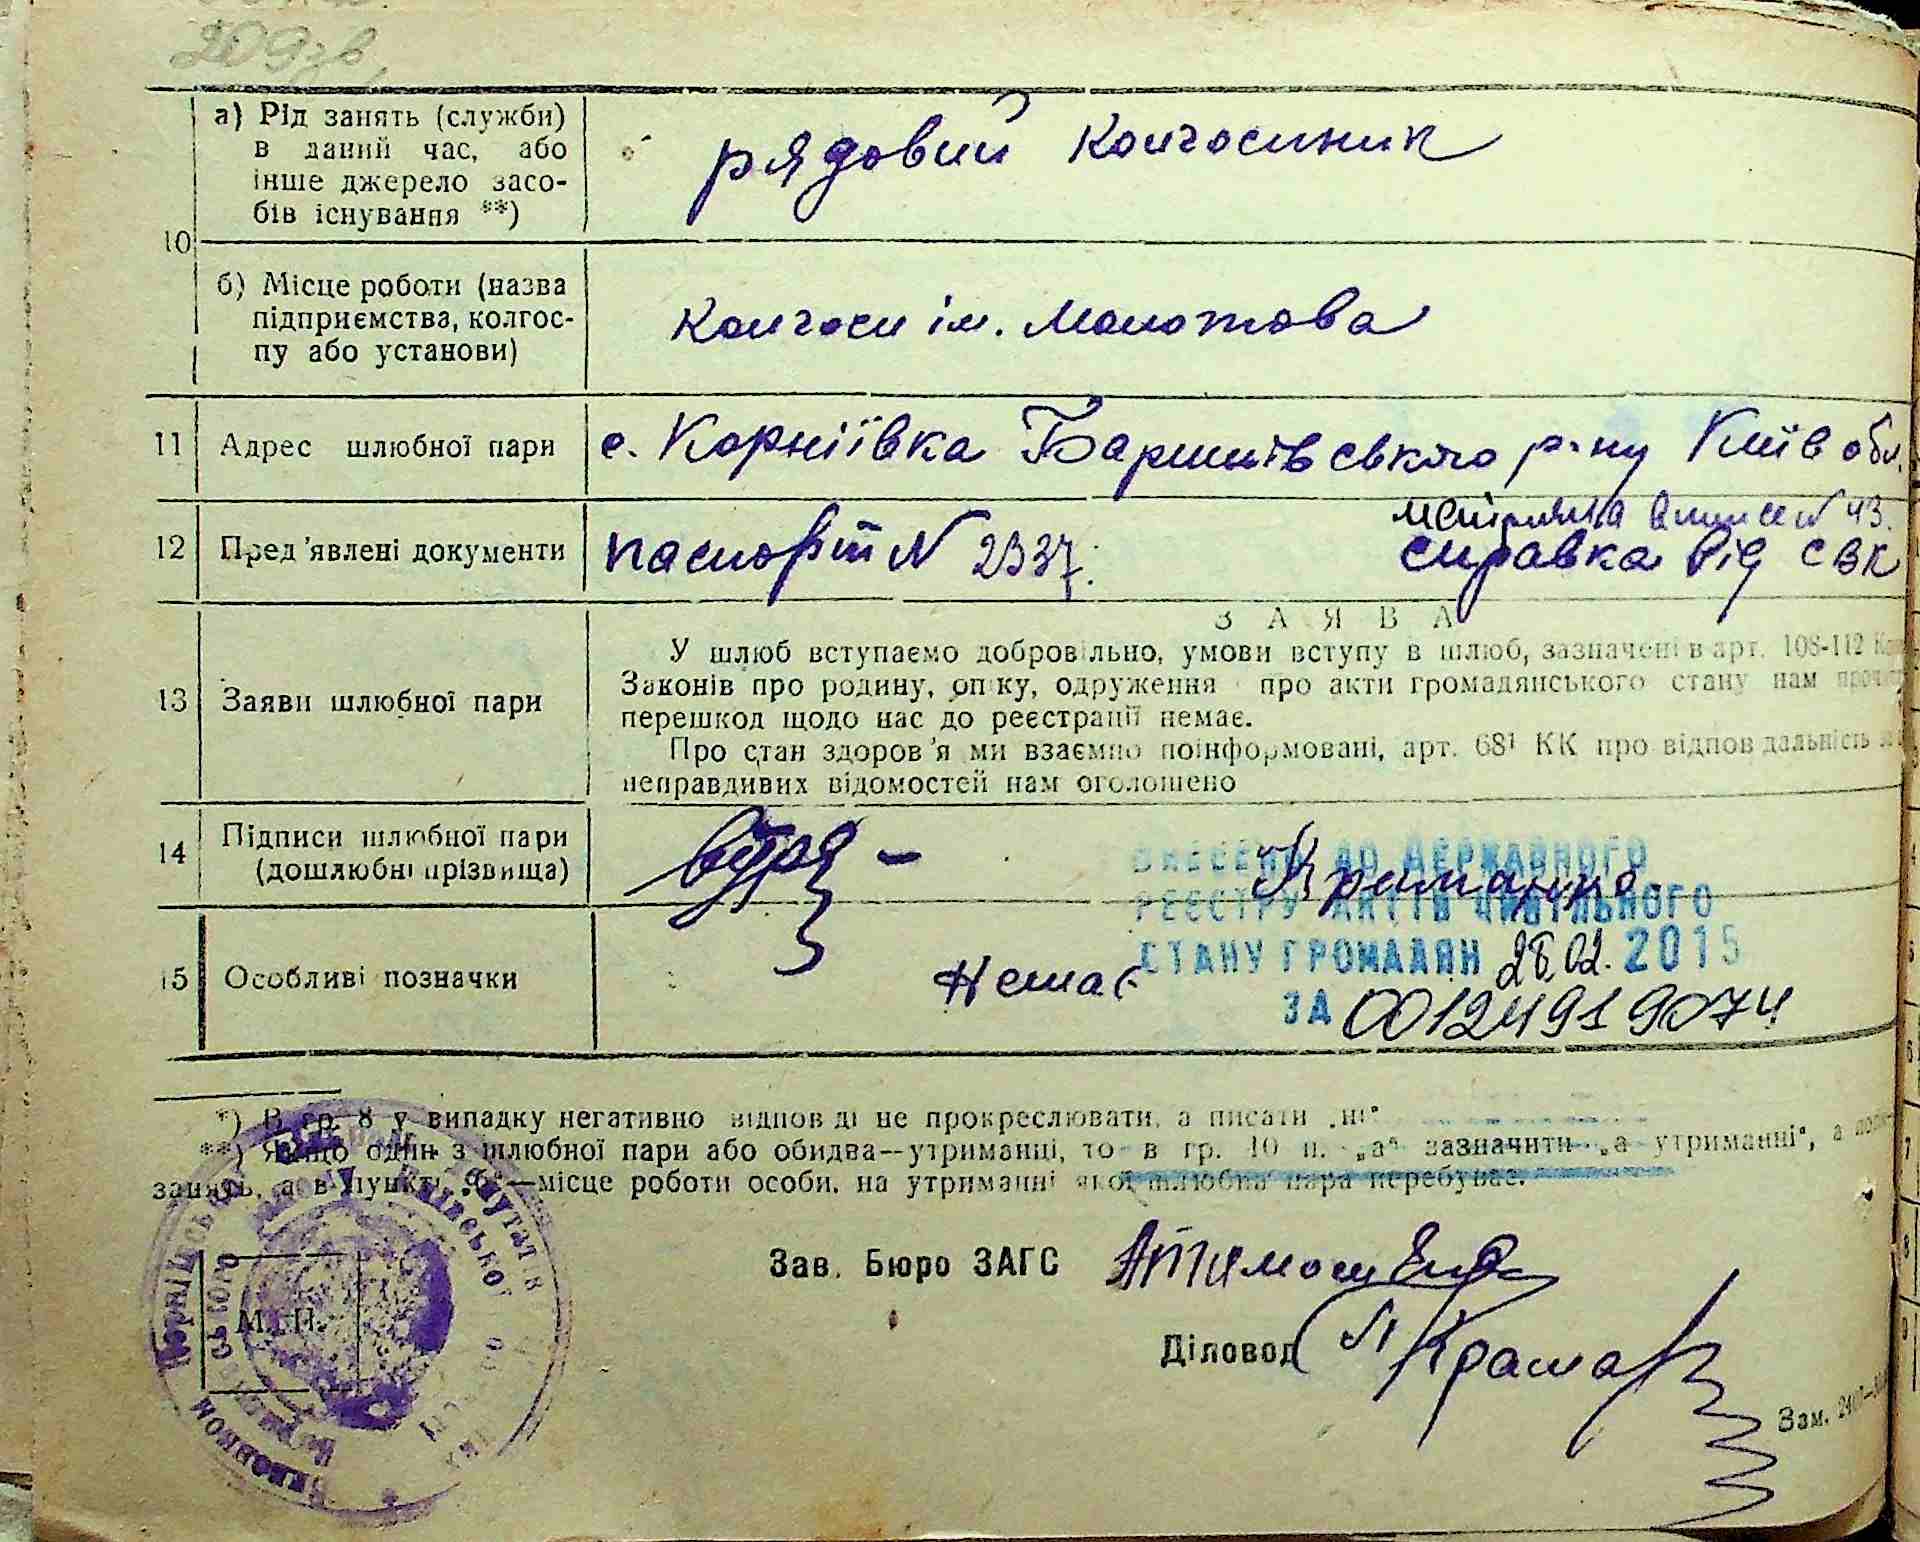 209зв
10
а) Рід занять (служби)
в даний час, або
інше джерело засо-
бів існування **)
рядовий колгоспник
б) Місце роботи (назва
підприємства, колгос-
пу або установи)
колгосп ім. Молотова
11 Адрес шлюбної пари
с. Корніївка Баришівського р-ну Київ обл.
12 Пред'явлені документи
паспорт N 2337.
N 43.
справка від СВК
ЗАЯВА
13 Заяви шлюбної пари
У шлюб вступаємо добровільно, умови вступу в шлюб, зазначені в арт. 108-112
Законів про родину, опіку, одруження про акти громадянського стану нам
перешкод щодо нас до реєстрації немає.
Про стан здоров'я ми взаємно поінформовані, арт. 68¹ КК про відповідальність
неправдивих відомостей нам оголошено
14 Підписи шлюбної пари
(дошлюбні прізвища)
ВНЕСЕНО ДО ДЕРЖАВНОГО
РЕЄСТРУ АКТІВ ЦИВІЛЬНОГО
СТАНУ ГРОМАДЯН 26.02.2015
ЗА 00124919074
15 Особливі позначки
Немає
*) В гр. 8 у випадку негативно відповіді не прокреслювати, а писати „ні"
**) Якщо один з шлюбної пари або обидва—утриманці, то в гр. 10 п. „а" зазначити „а утриманні", а
занять, а в пункті „б"—місце роботи особи, на утриманні якої шлюбна пара перебуває.
Зав. Бюро ЗАГС Тимошенко
Діловод Крамар
М. П.
Виконком
Зам.